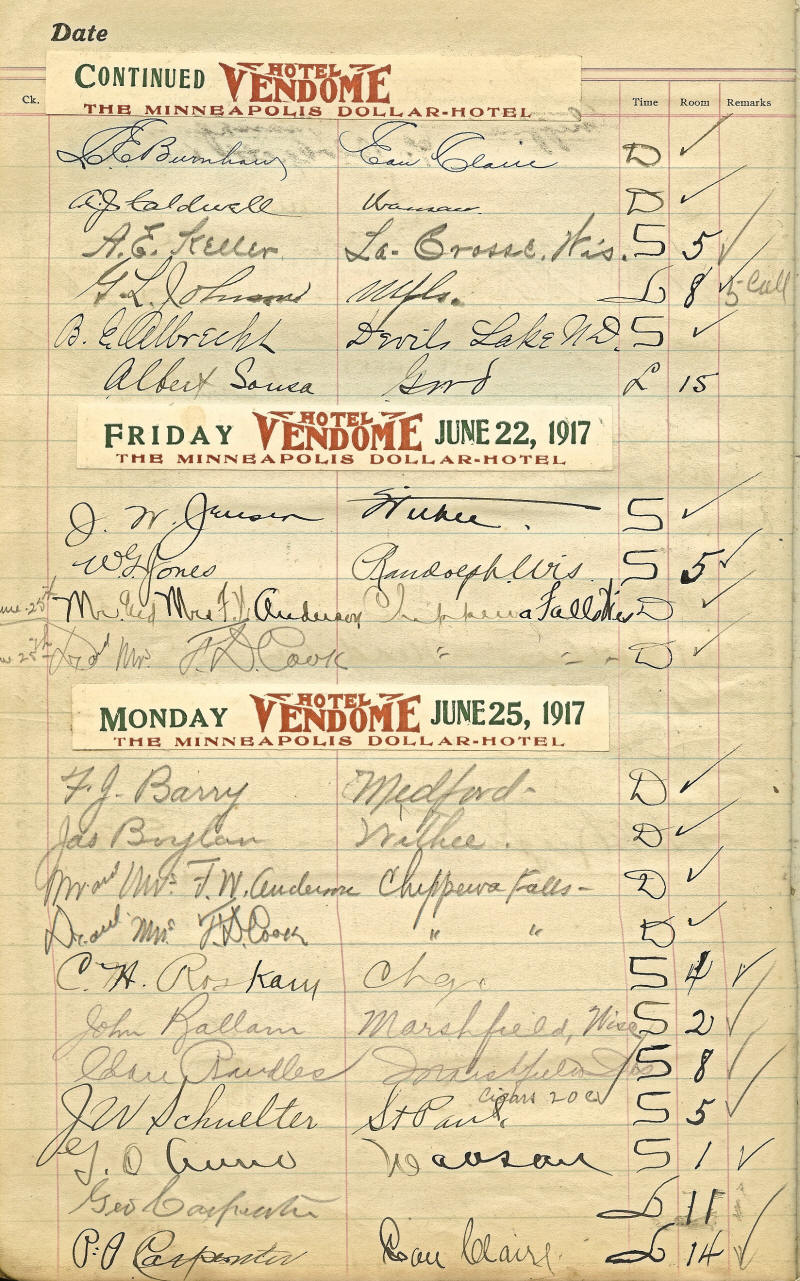 Date
CONTINUED HOTEL VENDOME
THE MINNEAPOLIS DOLLAR-HOTEL
Ck. Time Room Remarks
L.E. Burnham Eau Claire D ✓
A.J. Caldwell Wausau. D ✓
A.E. Keller La-Crosse. Wis. S 5 ✓
G.L. Johnson Mpls. L 8 ✓ 5 Call
B.E. Albrecht Devils Lake N.D. S ✓
Albert Sousa L 15
FRIDAY HOTEL VENDOME JUNE 22, 1917
THE MINNEAPOLIS DOLLAR-HOTEL
J. W. Jensen Withee. S ✓
W.G. Jones Randolph. Wis. S 5 ✓
June 25th Mr. and Mrs F.W. Anderson Chippewa Falls Wis D ✓
June 25th Dr and Mrs. F.D. Cook " " D ✓
MONDAY HOTEL VENDOME JUNE 25, 1917
THE MINNEAPOLIS DOLLAR-HOTEL
F.J. Barry Medford- D ✓
Jas Boylan Withee. D ✓
Mr and Mrs. F.W. Anderson Chippewa Falls- D ✓
Dr. and Mrs. F.D. Cook " " D ✓
C. H. Roskam Chgo. S 4 ✓
John Ballam Marshfield, Wisc S 2 ✓
Randles Marshfield Wis S 8 ✓
Cigars 20c ✓
J W Schuelter St Paul. S 5 ✓
G. O Wausau S 1 ✓
Geo Carpenter L 11 ✓
P. O Carpenter Eau Claire. L 14 ✓